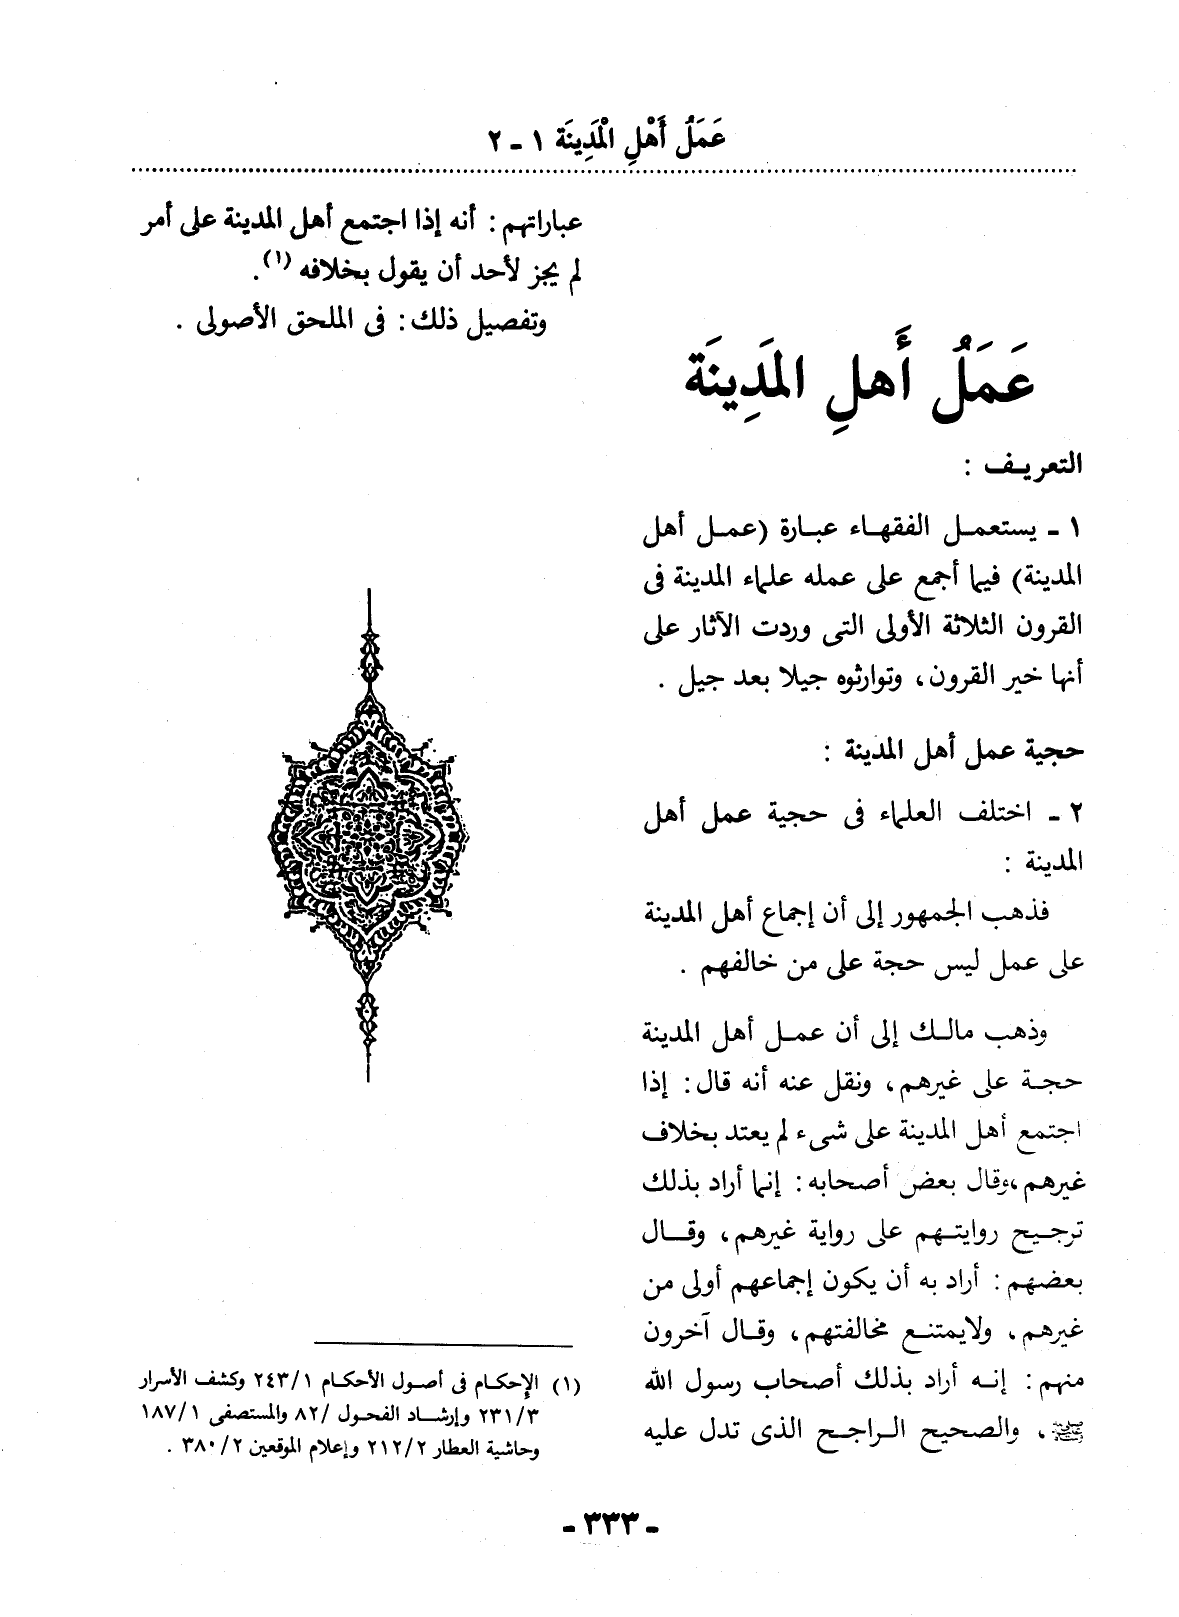 عَمَلُ أَهْلِ الْمَدِينَة ١ - ٢
عَمَلُ أَهلِ المَدِينَة
التعريـف :
١ - يستعمـل الفقهـاء عبـارة (عمـل أهل
المدينة) فيما أجمع على عمله علماء المدينة فى
القرون الثلاثة الأولى التى وردت الآثار على
أنها خير القرون، وتوارثوه جيلا بعد جيل .
حجية عمل أهل المدينة :
٢ - اختلف العلماء فى حجية عمل أهل
المدينة :
فذهب الجمهور إلى أن إجماع أهل المدينة
على عمل ليس حجة على من خالفهم .
وذهب مالـك إلى أن عمـل أهل المدينة
حجـة على غيرهم، ونقل عنه أنه قال: إذا
اجتمع أهل المدينة على شىء لم يعتد بخلاف
غيرهم،وقال بعض أصحابه: إنما أراد بذلك
ترجـيح روايتـهم على رواية غيرهم، وقـال
بعضهم: أراد به أن يكون إجماعهم أولى من
غيرهم، ولايمتنـع مخالفتهم، وقـال آخرون
منهم: إنـه أراد بذلك أصحاب رسول الله
ﷺ، والصحيح الـراجـح الذى تدل عليه
عباراتهم: أنه إذا اجتمع أهل المدينة على أمر
لم يجز لأحد أن يقول بخلافه (١).
وتفصيل ذلك: فى الملحق الأصولى .
(١) الإحكـام فى أصـول الأحكـام ٢٤٣/١ وكشف الأسرار
٢٣١/٣ وإرشـاد الفحـول /٨٢ والمستصفى ١٨٧/١
وحاشية العطار ٢١٢/٢ وإعلام الموقعين ٣٨٠/٢ .
- ٣٣٣ -